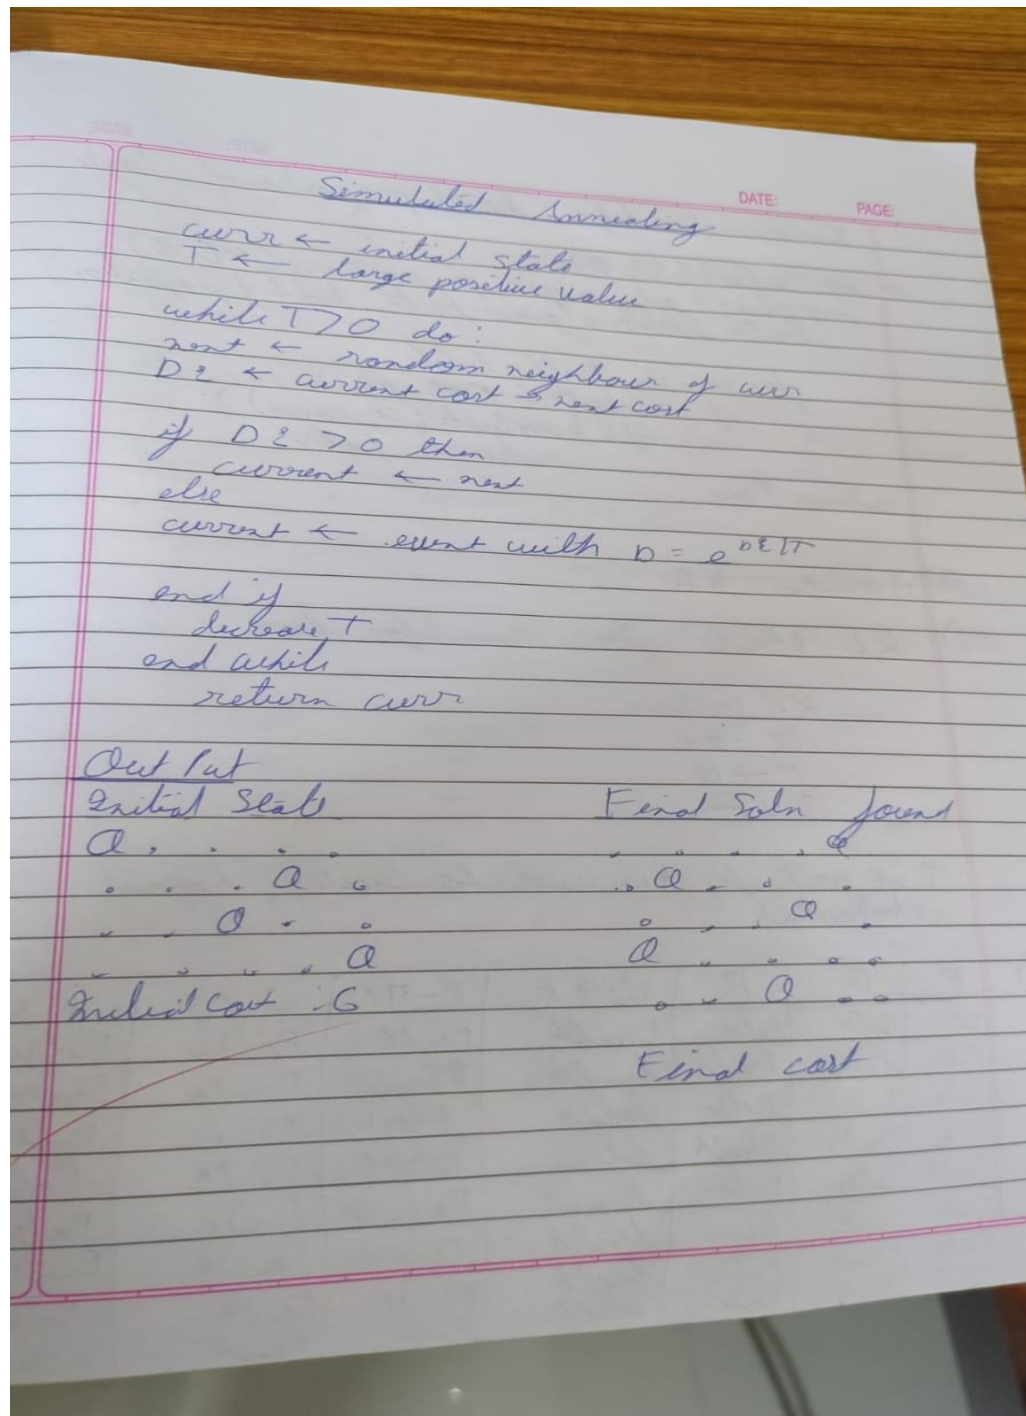 DATE: PAGE:
Simulated Annealing
curr ← initial state
T ← large positive value
while T > 0 do :
next ← random neighbour of curr
DE ← current cost - next cost
if DE > 0 then
current ← next
else
current ← event with p = e^DE/T
end if
decrease T
end while
return curr
Out Put
Initial State Final Soln found
Q . . . . . . . . Q
. . . Q . . Q . . .
. . Q . . . . . Q .
. . . . Q Q . . . .
Initial cost : 6 . . Q . .
Final cost